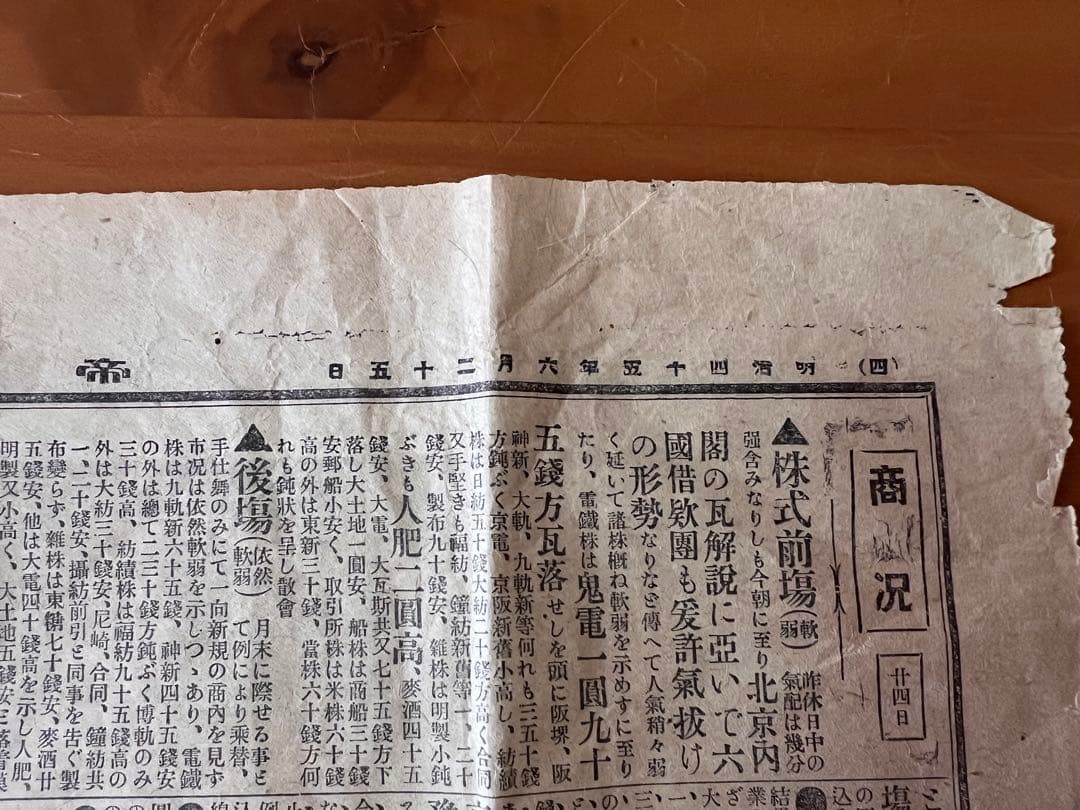 (四) 明治四十五年六月二十五日
帝
商况
廿四日
▲株式前塲(軟弱) 昨休日中の氣配は幾分
强含みなりしも今朝に至り北京內
閣の瓦解說に亞いで六
國借欵團も爰許氣拔け
の形勢なりなど傳へて人氣稍々弱
く延いて諸株槪ね軟弱を示めすに至り
たり、電鐵株は鬼電一圓九十
五錢方瓦落せしを頭に阪堺、阪
神新、大軌、九軌新等何れも三五十錢
方鈍ぶく京電、京阪新舊小高し、紡績
株は日紡五十錢大紡二十錢方高く合同
又手堅きも福紡、鐘紡新舊等一、二十
錢安、製布九十錢安、雜株は明製小鈍
ぶきも人肥二圓高、麥酒四十五
錢安、大電、大瓦斯共又七十五錢方下
落し大土地一圓安、船株は商船三十錢
安郵船小安く、取引所株は米株六十錢
高の外は東新三十錢、當株六十錢方何
れも鈍狀を呈し散會
▲後塲(依然軟弱) 月末に際せる事と
て例により乘替、
手仕舞のみにて一向新規の商內を見ず
市况は依然軟弱を示しつゝあり、電鐵
株は九軌新六十五錢、神新四十五錢安
の外は總て二三十錢方鈍ぶく博軌のみ
三十錢高、紡績株は福紡九十五錢高の
外は大紡三十錢安、尼崎、合同、鐘紡共
一、二十錢安、攝紡前引と同事を吿ぐ製
布變らず、雜株は東糖七十錢安、麥酒廿
五錢安、他は大電四十錢高を示し人肥、
明製又小高く、大土地五錢安